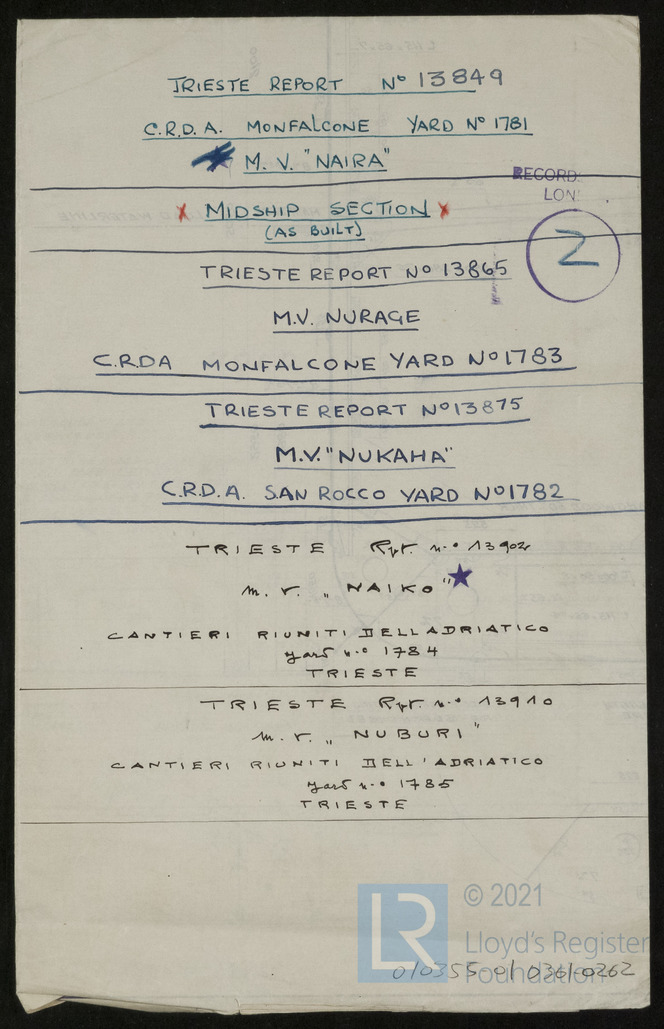 TRIESTE REPORT Nº 13849
C.R.D.A. MONFALCONE YARD Nº 1781
M.V. "NAIRA"
RECORD
LON
MIDSHIP SECTION
(AS BUILT)
2
TRIESTE REPORT Nº 13865
M.V. NURAGE
C.R.D.A MONFALCONE YARD Nº 1783
TRIESTE REPORT Nº 13875
M.V. "NUKAHA"
C.R.D.A. SAN ROCCO YARD Nº 1782
TRIESTE Rpt. n.º 13902
m. v. „ NAIKO "
CANTIERI RIUNITI DELL ADRIATICO
yard n.º 1784
TRIESTE
TRIESTE Rpt. n.º 13910
m. v. „ NUBURI "
CANTIERI RIUNITI DELL'ADRIATICO
yard n.º 1785
TRIESTE
LR
© 2021
Lloyd's Register
Foundation
010355-01 0361-0262